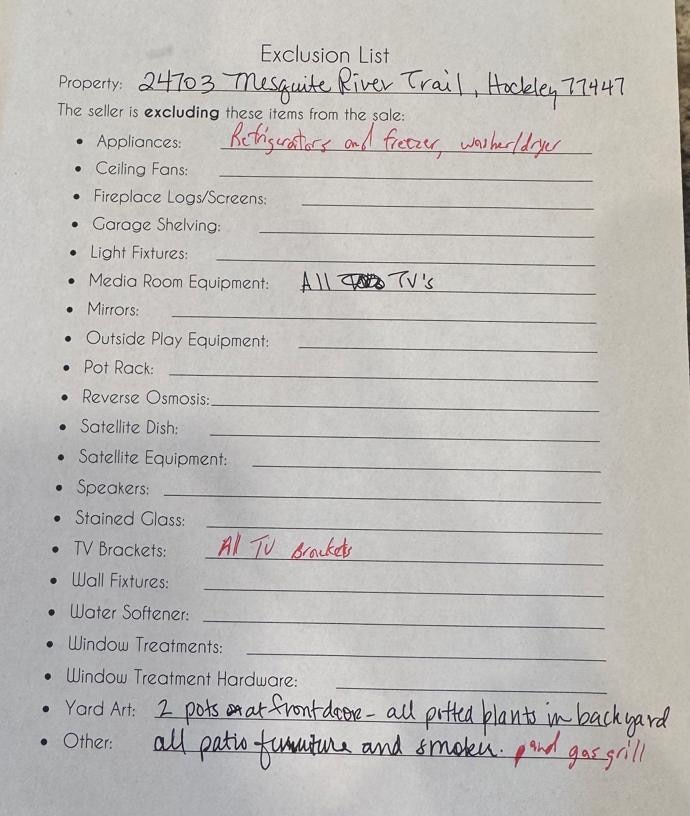 Exclusion List
Property: 24703 Mesquite River Trail, Hockley 77447
The seller is excluding these items from the sale:
• Appliances: Refrigerators and freezer, washer/dryer
• Ceiling Fans:
• Fireplace Logs/Screens:
• Garage Shelving:
• Light Fixtures:
• Media Room Equipment: All TV's
• Mirrors:
• Outside Play Equipment:
• Pot Rack:
• Reverse Osmosis:
• Satellite Dish:
• Satellite Equipment:
• Speakers:
• Stained Glass:
• TV Brackets: All TV Brackets
• Wall Fixtures:
• Water Softener:
• Window Treatments:
• Window Treatment Hardware:
• Yard Art: 2 pots at front door - all potted plants in backyard
• Other: all patio furniture and smoker. and gas grill